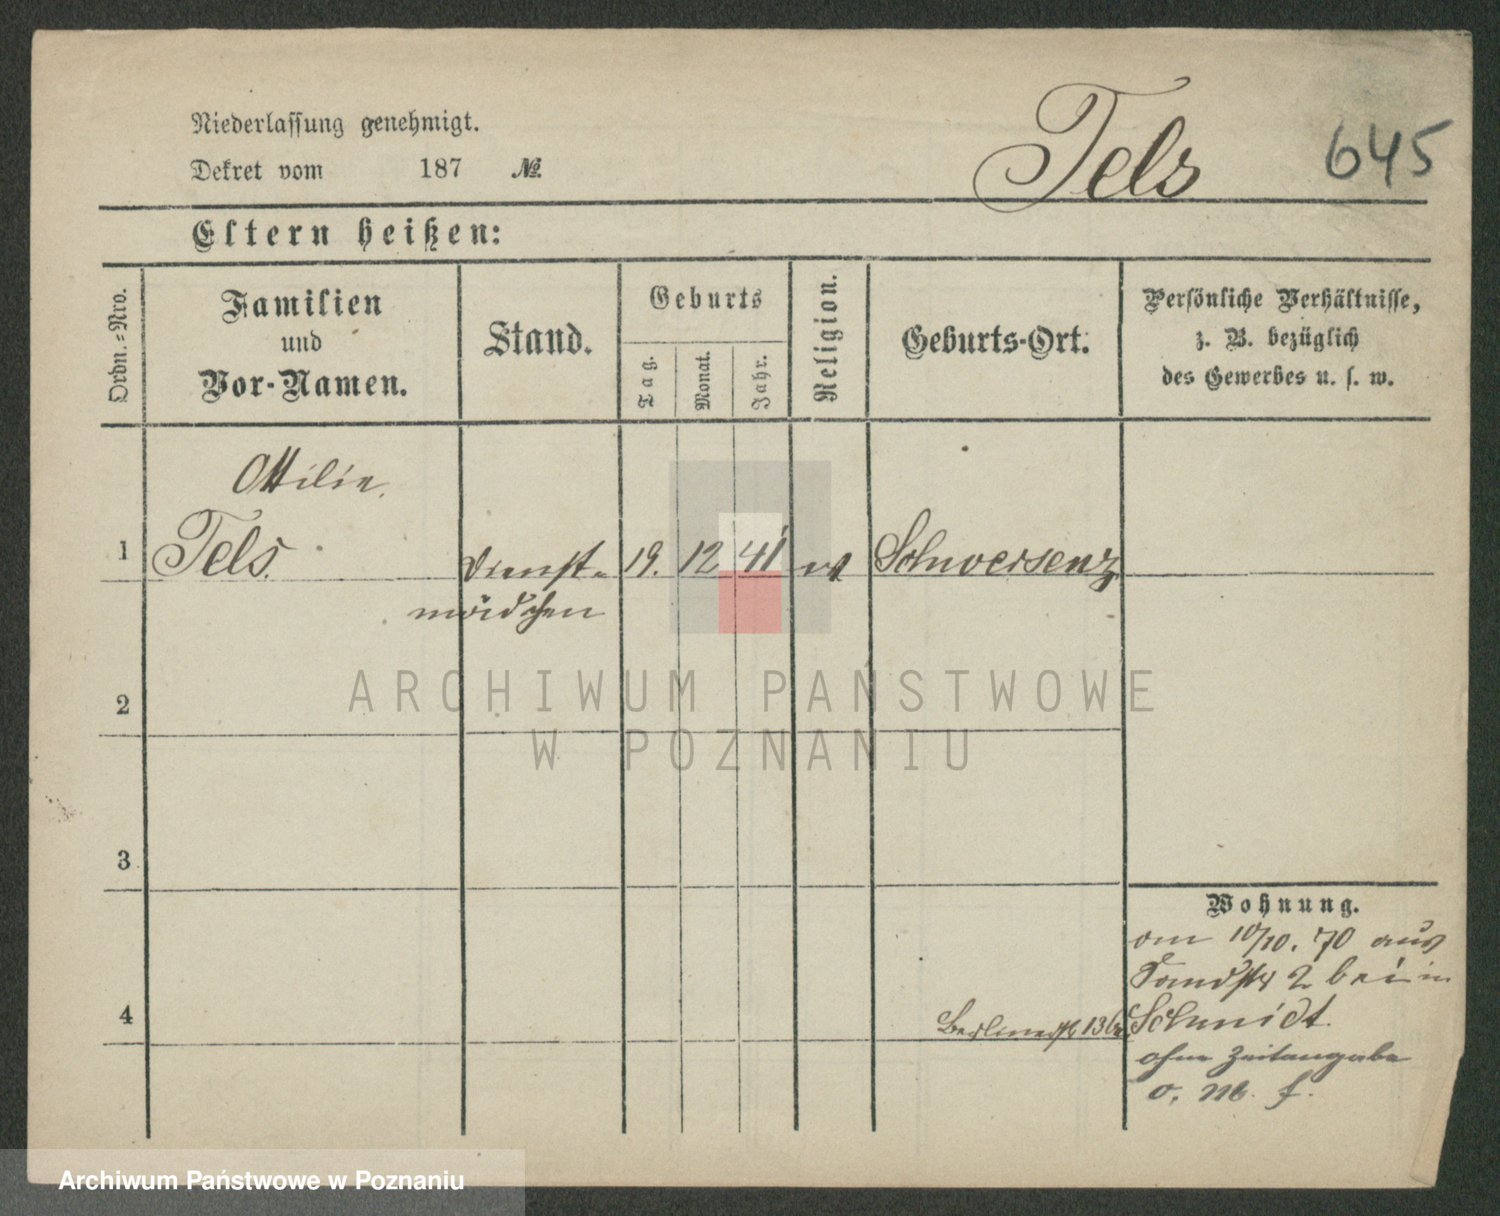 Niederlassung genehmigt.
Dekret vom 187 №
Tels
645
Eltern heißen:
Ordn.=Nro.
Familien
und
Vor-Namen.
Stand.
Geburts
Tag.
Monat.
Jahr.
Religion.
Geburts-Ort.
Persönliche Verhältnisse,
z. B. bezüglich
des Gewerbes u. s. w.
Ottilie.
1 Tels. Dienst- 19. 12 41 Schwersenz
mädchen
ARCHIWUM PAŃSTWOWE
W POZNANIU
2
3
4
Wohnung.
am 10/10. 70 aus
2 bei
Schmidt.
Berlinerstr 13
ohne Zeitangabe
o. M. f.
Archiwum Państwowe w Poznaniu